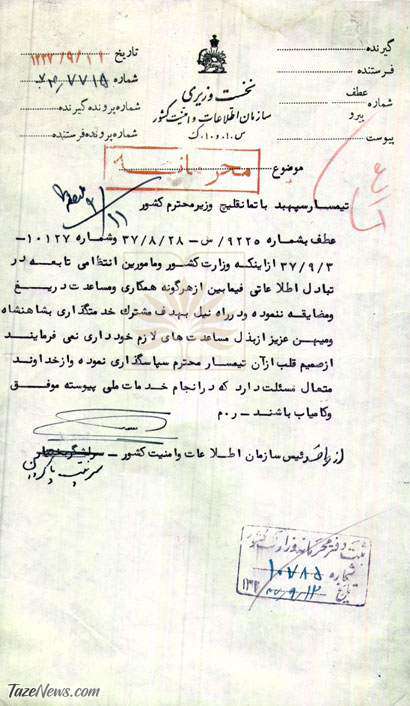 گیرنده
فرستنده
عطف
شماره
پیرو
پیوست
نخست وزیری
سازمان اطلاعات و امنیت کشور
س.ا.و.ا.ک
تاریخ
شماره
شماره پرونده گیرنده
شماره پرونده فرستنده
موضوع
محرمانه
تیمسار سپهبد باتمانقلیچ وزیر محترم کشور
عطف بشماره ۹۲۲۵/س-۳۷/۸/۲۸ وشماره ۱۰۱۲۷-
۳۷/۹/۳ ازاینکه وزارت کشور ومامورین انتظامی تابعه در
تبادل اطلاعاتی فیمابین ازهرگونه همکاری ومساعدت دریغ
ومضایقه ننموده ودرراه نیل بهدف مشترک خدمتگذاری بشاهنشاه
ومیهن عزیز ازبذل مساعدت های لازم خودداری نمی فرمایند
ازصمیم قلب ازآن تیمسار محترم سپاسگذاری نموده وازخداوند
متعال مسئلت دارد که درانجام خدمات ملی پیوسته موفق
وکامیاب باشند - ر.م
از طرف رئیس سازمان اطلاعات وامنیت کشور -
سرتیپ پاکروان
ثبت دفتر محرمانه وزارت کشور
شماره ۱۰۷۸۵
تاریخ
TazeNews.com